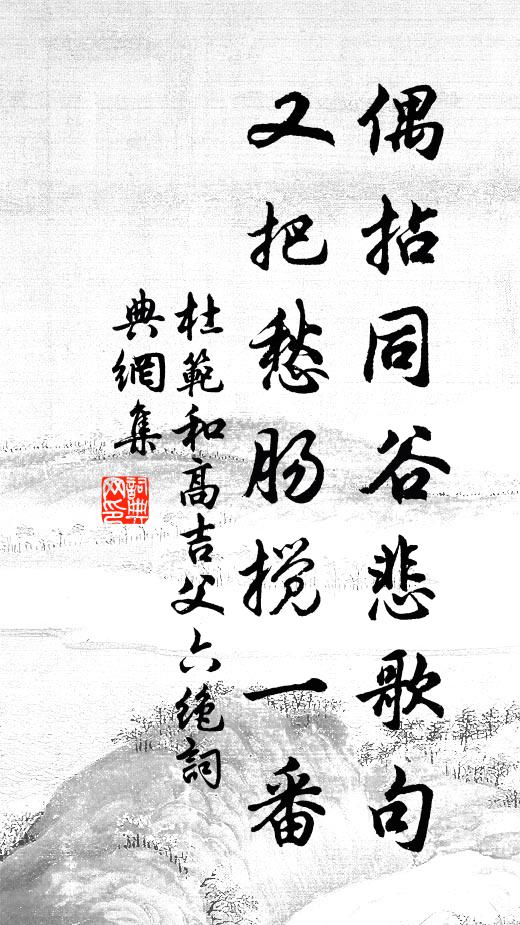 偶拈同谷悲歌句
又把愁肠搅一番
杜範和高吉父六绝詞
典網集
詞典
网印